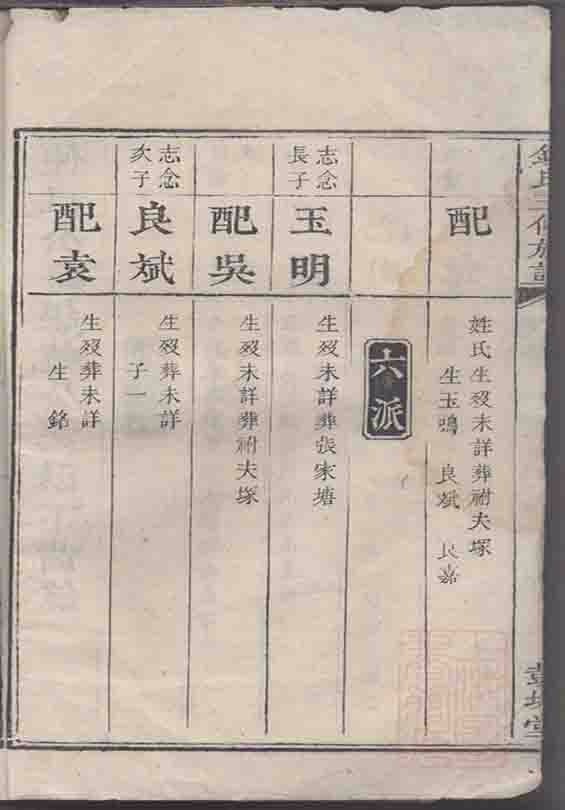 配
姓氏生歿未詳葬祔夫塚
生玉鳴 良斌 良
六派
志念
長子
玉明
生歿未詳葬張家塘
配吳
生歿未詳葬祔夫塚
志念
次子
良斌
生歿葬未詳
子一
配袁
生歿葬未詳
生銘